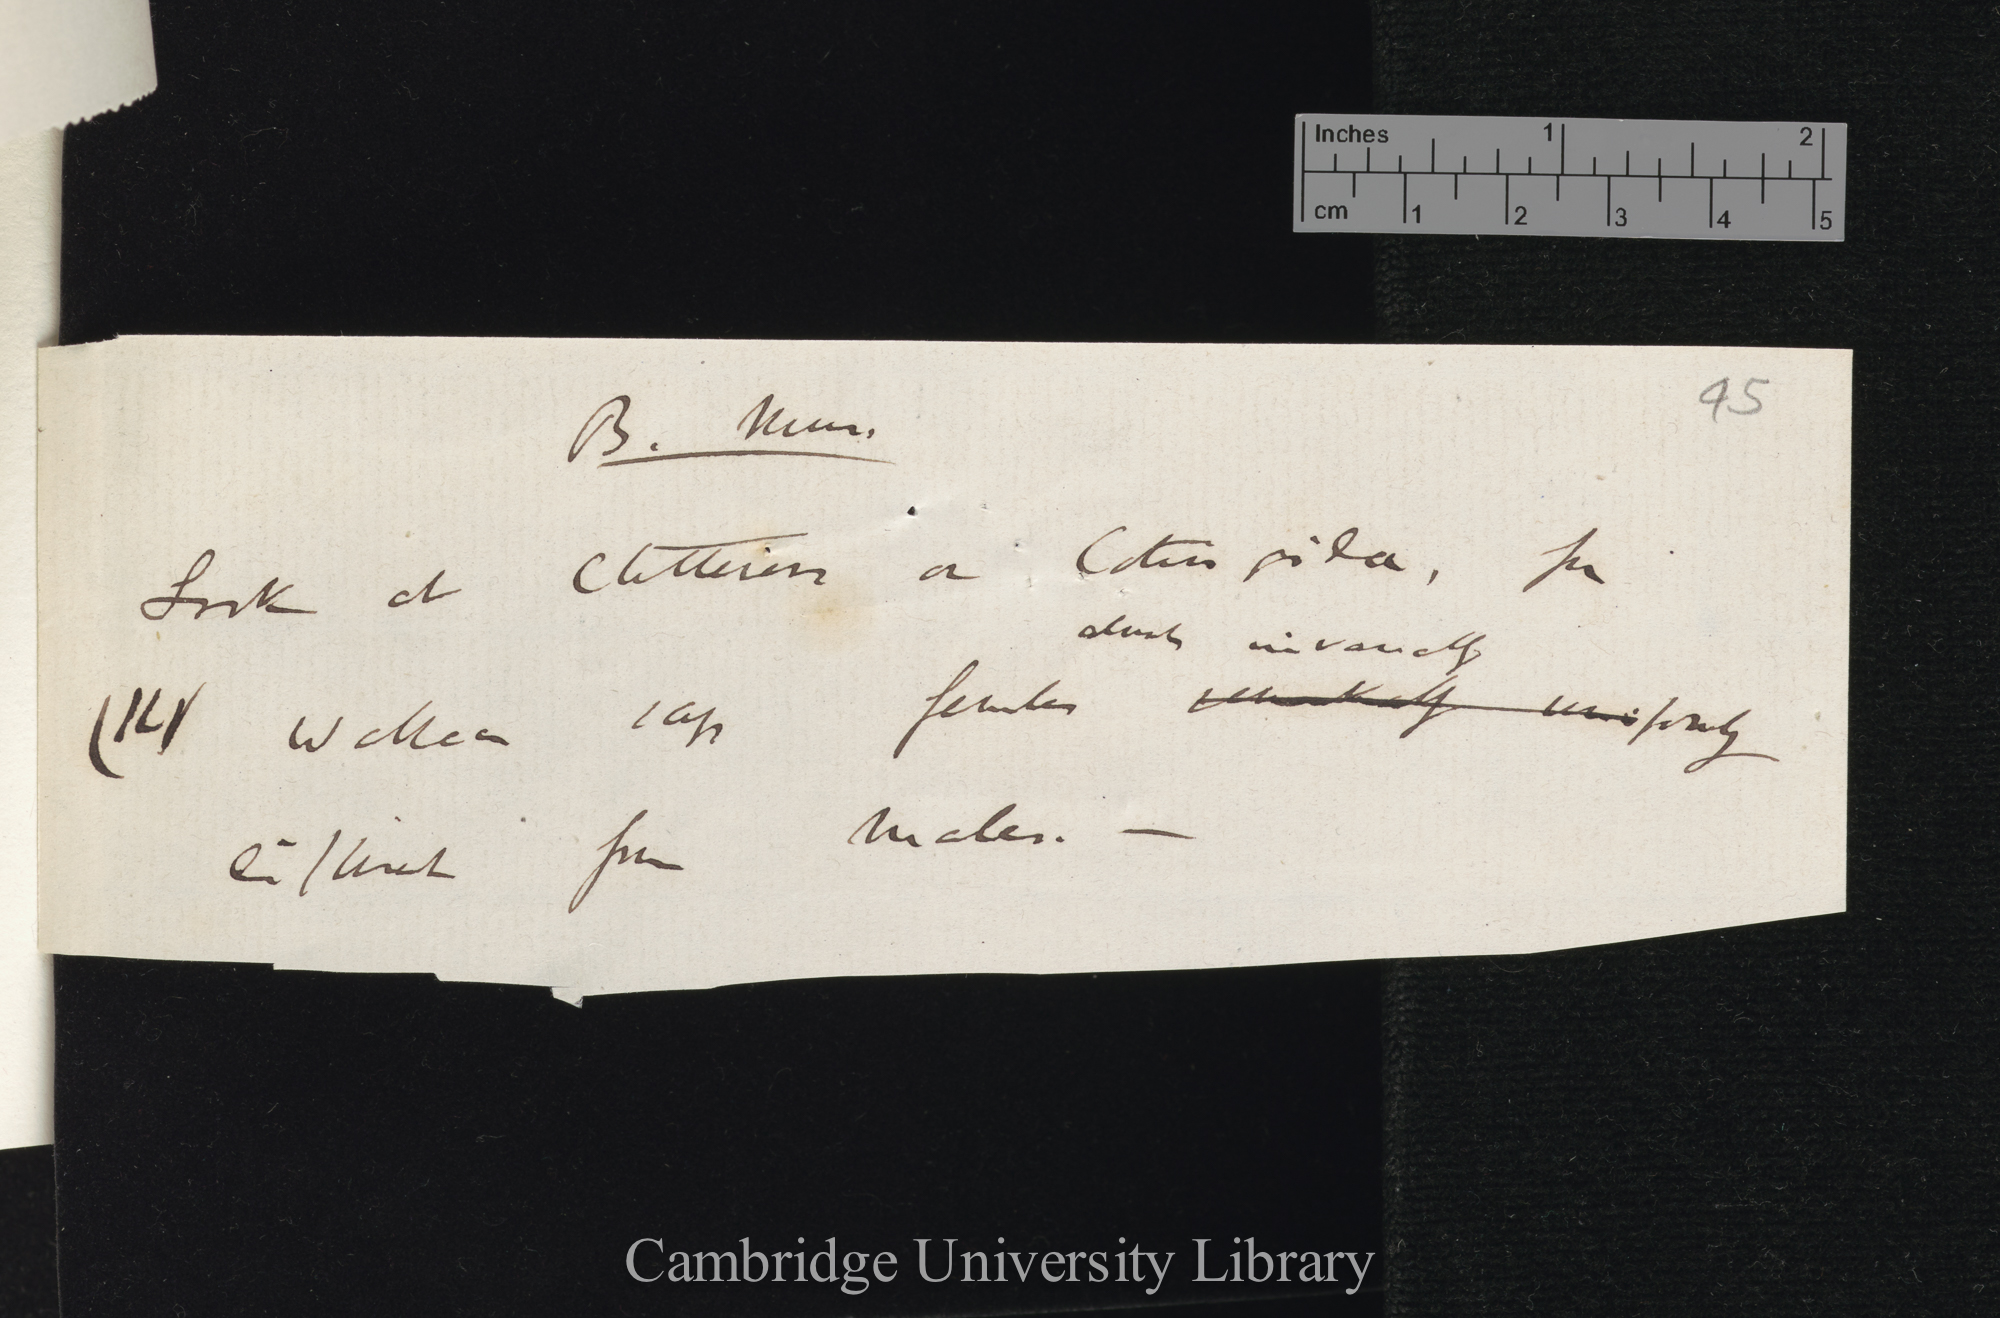 Inches 1 2
cm 1 2 3 4 5
95
B. Mus.
Look at Chatterers or Cotingidæ, for
almost invariably
Wallace says females remarkably uniformly
different from males. —
Cambridge University Library